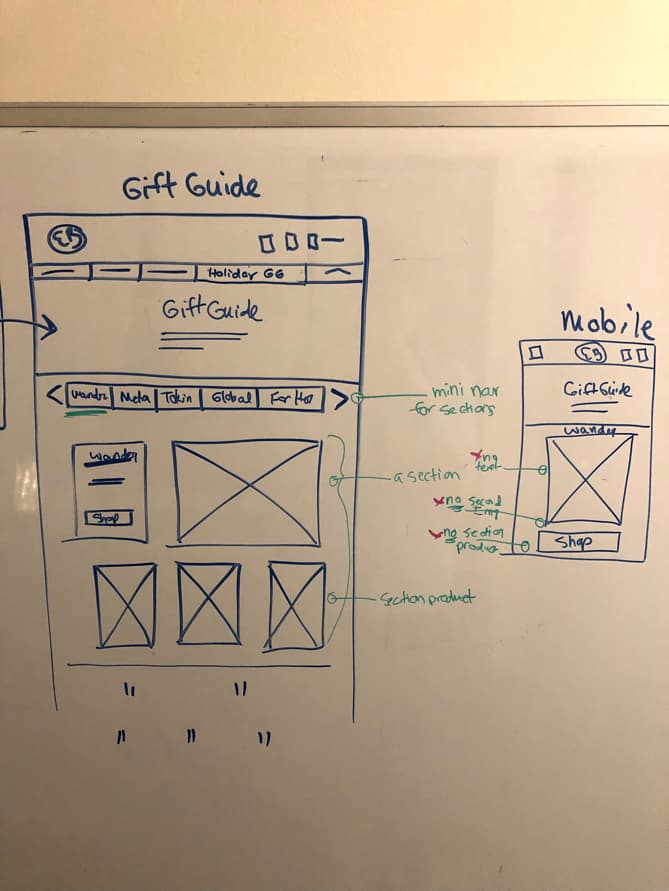 Gift Guide
EB
Holiday GG
Gift Guide
< wander Meta Tokin Global For Her >
mini nav
for sections
wander
Shop
a section
section product
" "
" " "
Mobile
EB
Gift Guide
wander
x no
text
x no second
img
x no section
product
Shop